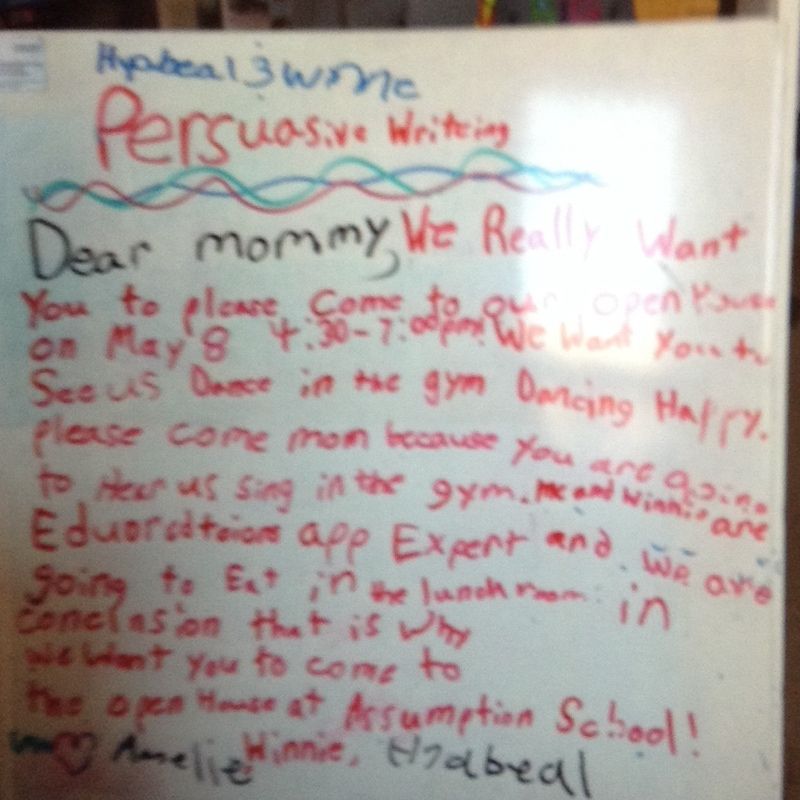 Hyabeal 3 Winnie
Persuasive Writeing
Dear mommy, We Really Want
You to please come to our open House
on May 8 4:30-7:00pm! We Want You to
See us Dance in the gym Dancing Happy.
please come mom because you are going
to Hear us sing in the gym. me and Winnie are
app Expert and. we are
going to Eat in the lunch room. in
conclusion that is why
we want you to come to
the open House at Assumption School!
Amelie Winnie, Hyabeal